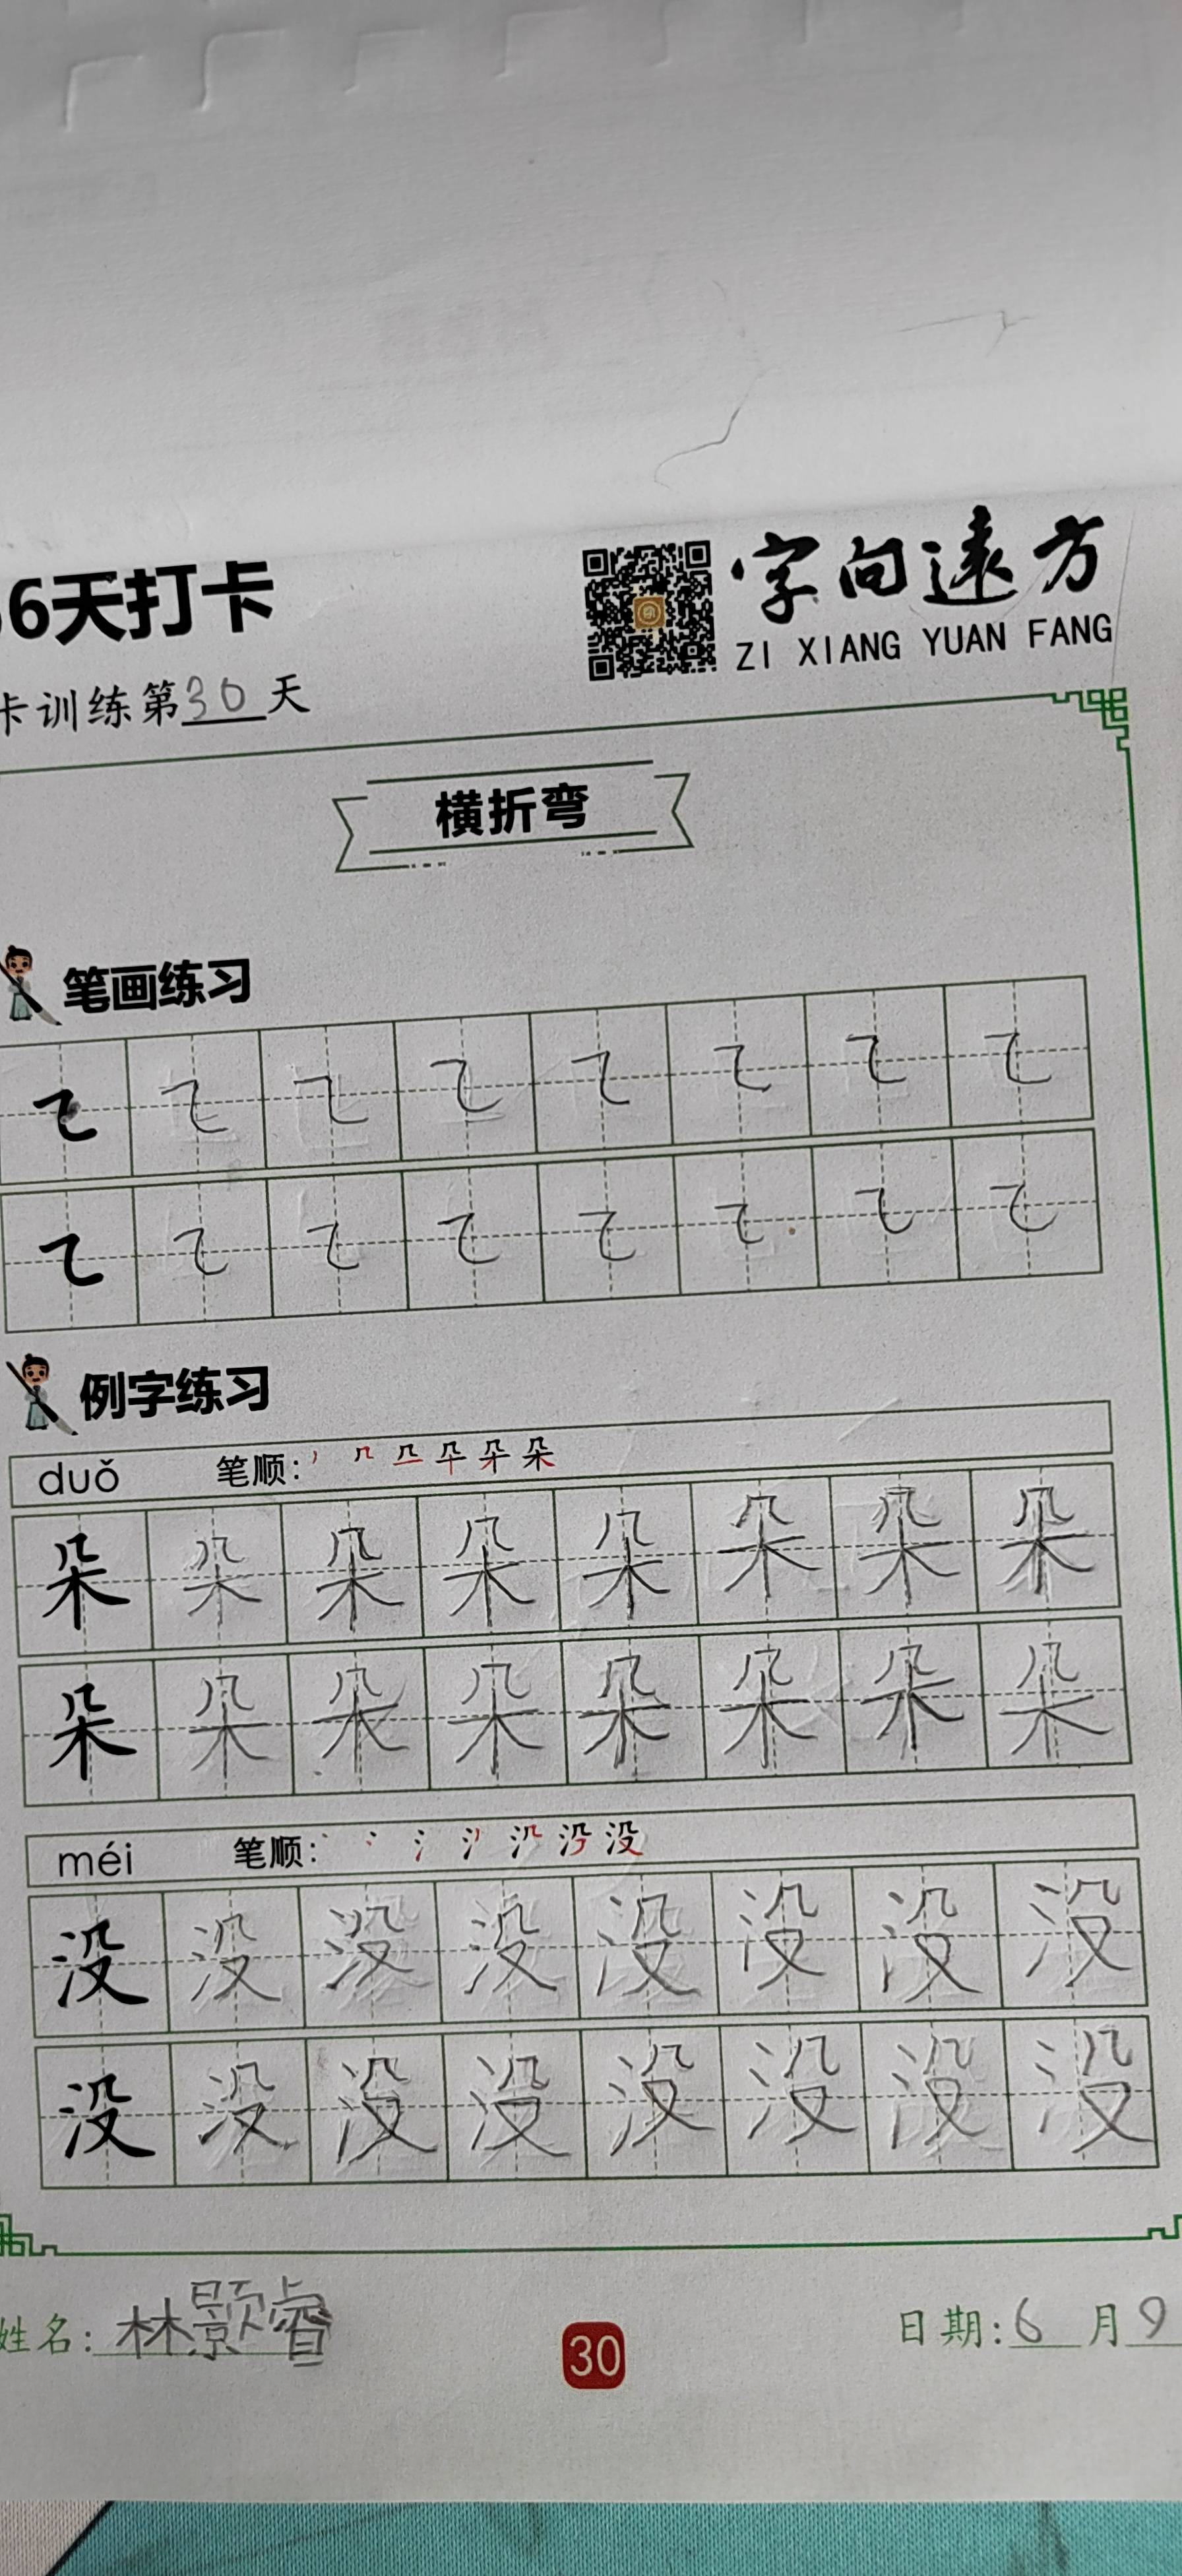 6天打卡
字向遠方
ZI XIANG YUAN FANG
卡训练第30天
横折弯
笔画练习
例字练习
duǒ 笔顺:
朵 朵 朵 朵 朵 朵 朵 朵
朵 朵 朵 朵 朵 朵 朵 朵
méi 笔顺: 没
没 没 没 没 没 没 没 没
没 没 没 没 没 没 没 没
姓名: 林颢睿
30
日期: 6月9